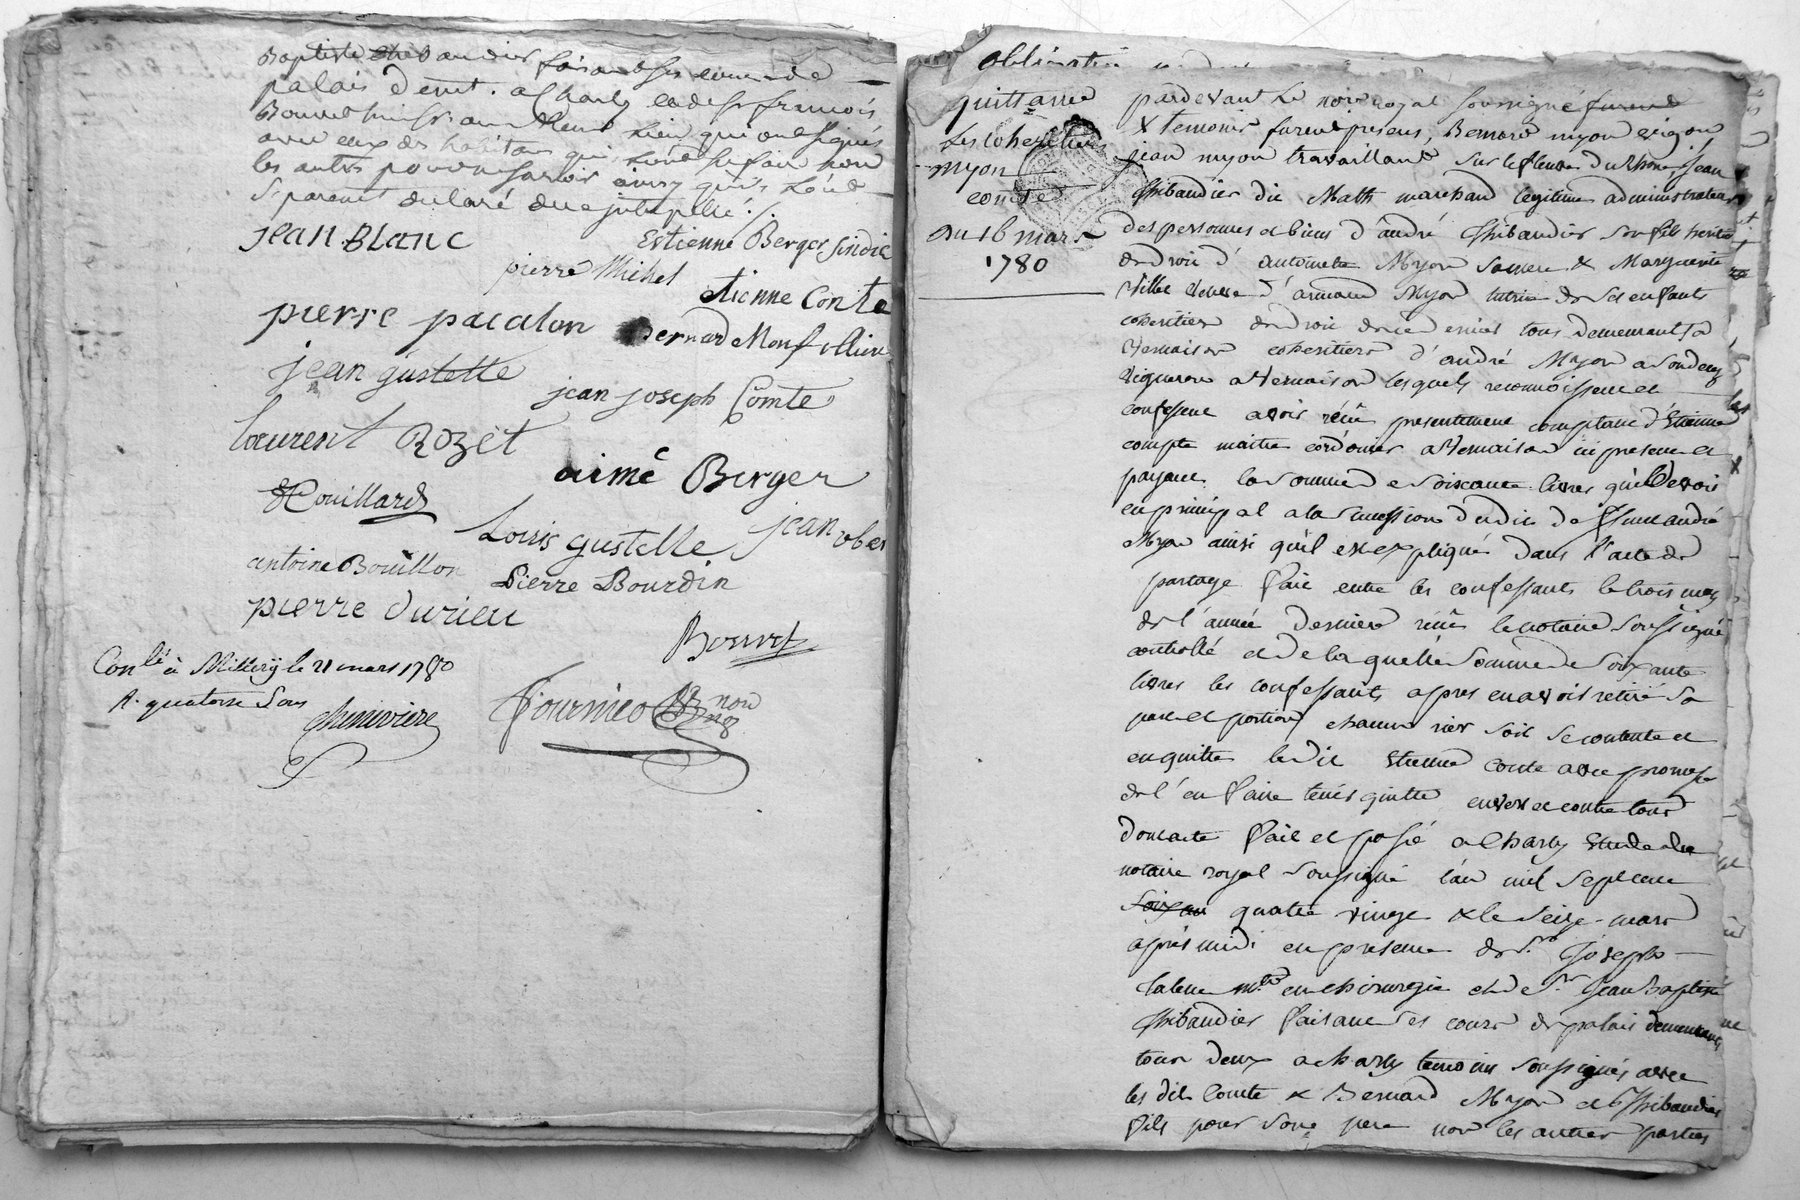 Baptiste Thibaudier faisant ses cours de
palais demt. a Charly et de sr françois
avec eux des habitans qui l'ont sçu faire non
les autres pour ne savoir ainsy qu'ils l'ont
separemt declaré de ce interpellé ./.
jean Blanc
Estienne Berger sindic
pierre Michel
etienne Conte
pierre pacalon
Bernard Monfollier
jean gustelle
jean joseph Comte
laurent Rozet
aimé Berger
Couillard
Louis gustelle
jean
antoine Bouillon
Pierre Bourdin
pierre durieu
Bonnet
Conlé à Millery le 21 mars 1780
R. quatorze sous
Chenivière
obligation
quittance
Les coheritiers
myon
comte
Du 16 mars
1780
pardevant Le notre royal soussigné furent
& temoins furent presens, Bernard myon vigon,
jean myon travaillant sur le fleuve du Rhône, jean
Thibaudier dit Math marchand legitime administrateur
des personnes et biens d'andré Thibaudier son fils heritier
de droit d'antoinette Myon sa mere & Marguerite
veuve d'armand Myon tutrice de ses enfants
coheritiers de droit de ce dernier tous demeurant a
Vernaison coheritiers d'andré Myon
vigneron a Vernaison lesquels reconnoissent et
confessent avoir reçû presentement comptant d'Etienne
compte maitre cordonier a Vernaison ici present et
payant la somme de soixante livres qu'il devoit
en principal a la succession dudit deffunt andré
Myon ainsi qu'il est expliqué dans l'acte de
partage fait entre les confessants le trois may
de l'année derniere reçû le notaire soussigné
controllé et de laquelle somme de soixante
livres les confessants apres en avoir retiré sa
part et portion chacun rier soit se contente et
en quitte ledit Etienne Conte avec promesse
de l'en faire tenir quitte envers et contre tous
dont acte fait et passé a Charly Etude du
notaire royal soussigné l'an mil sept cent
soixan quatre vingt & le seize mars
après midi en presence de sr. Joseph
mtre en chirurgie et de sr. Jean Baptiste
Thibaudier faisant ses cours de palais demeurants
tous deux a charly temoins soussignés avec
les dits Comte & Bernard Myon et Thibaudier
fils pour son pere non les autres parties